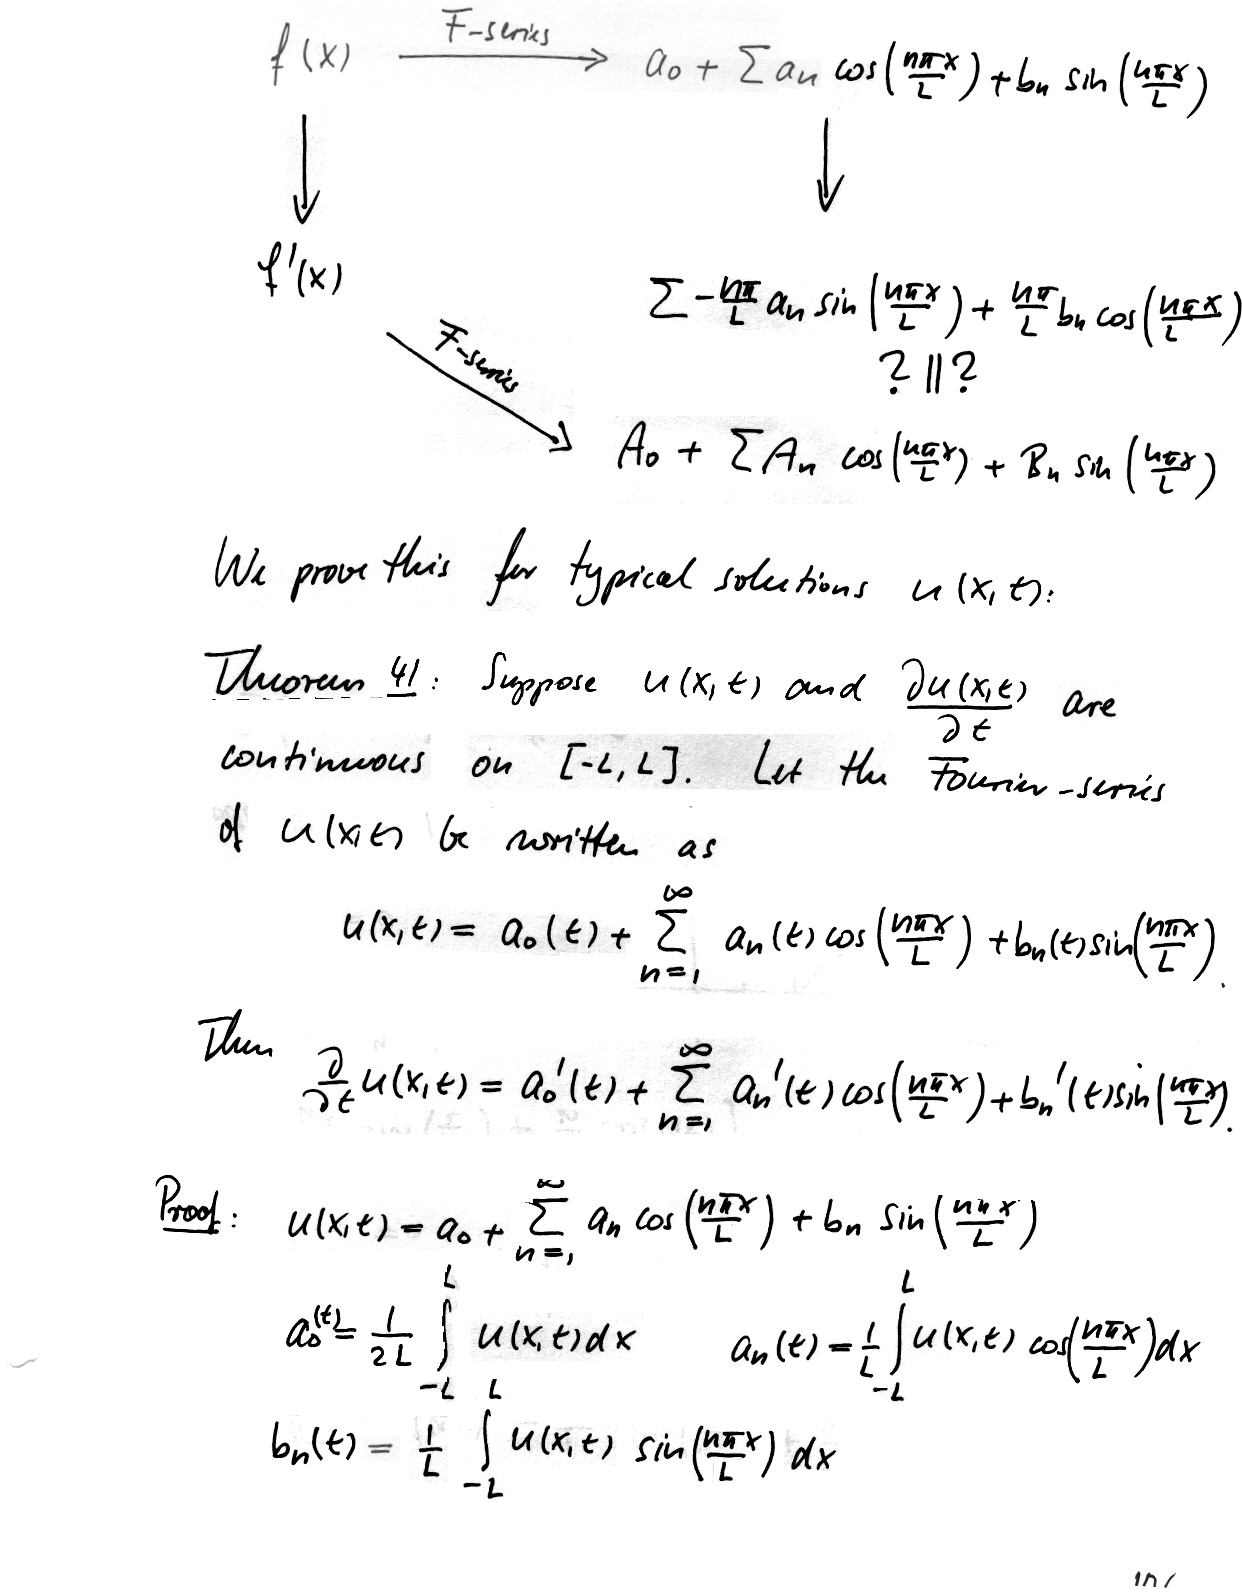 f(x) F-series → a₀ + ∑ aₙ cos(nπx/L) + bₙ sin(nπx/L)
↓ ↓
f'(x)
∑ -nπ/L aₙ sin(nπx/L) + nπ/L bₙ cos(nπx/L)
? || ?
F-series
A₀ + ∑ Aₙ cos(nπx/L) + Bₙ sin(nπx/L)
We prove this for typical solutions u(x,t):
Theorem 41: Suppose u(x,t) and ∂u(x,t)/∂t are
continuous on [-L, L]. Let the Fourier-series
of u(x,t) be written as
u(x,t) = a₀(t) + ∑_{n=1}^{∞} aₙ(t) cos(nπx/L) + bₙ(t) sin(nπx/L).
Then
∂/∂t u(x,t) = a₀'(t) + ∑_{n=1}^{∞} aₙ'(t) cos(nπx/L) + bₙ'(t) sin(nπx/L).
Proof: u(x,t) = a₀ + ∑_{n=1}^{∞} aₙ cos(nπx/L) + bₙ sin(nπx/L)
a₀(t) = 1/2L ∫_{-L}^{L} u(x,t) dx aₙ(t) = 1/L ∫_{-L}^{L} u(x,t) cos(nπx/L) dx
bₙ(t) = 1/L ∫_{-L}^{L} u(x,t) sin(nπx/L) dx